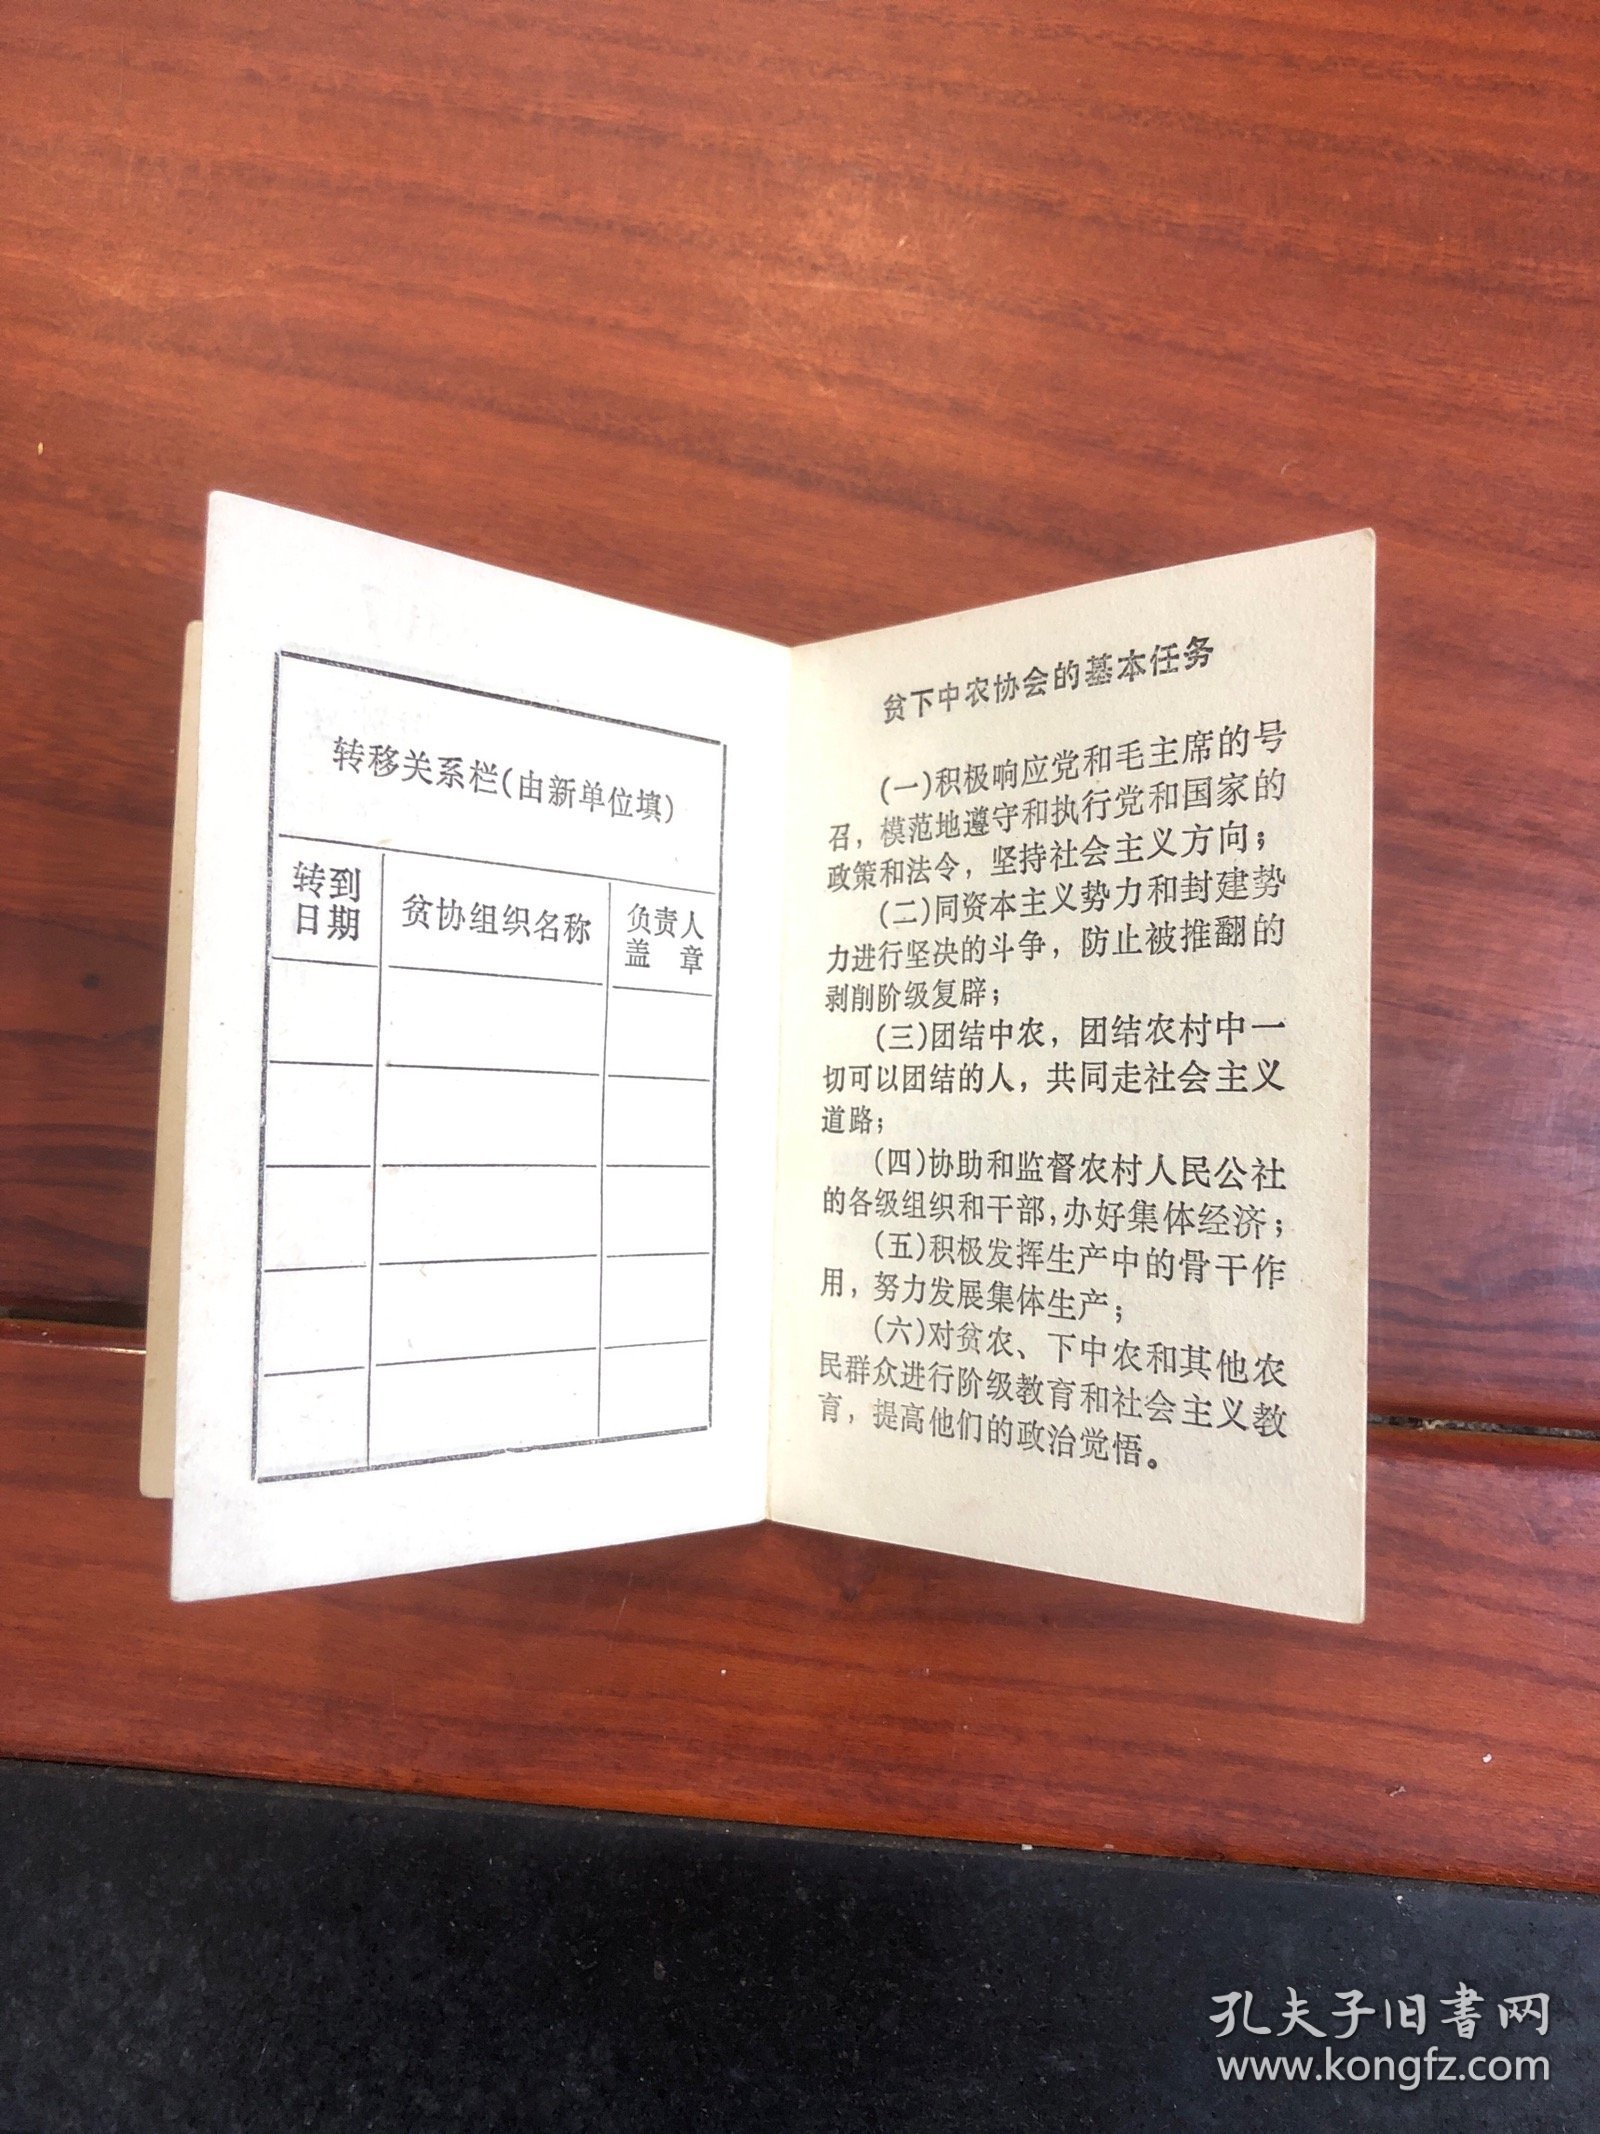 转移关系栏(由新单位填)
转到
日期
贫协组织名称
负责人
盖　章
贫下中农协会的基本任务
(一)积极响应党和毛主席的号
召，模范地遵守和执行党和国家的
政策和法令，坚持社会主义方向；
(二)同资本主义势力和封建势
力进行坚决的斗争，防止被推翻的
剥削阶级复辟；
(三)团结中农，团结农村中一
切可以团结的人，共同走社会主义
道路；
(四)协助和监督农村人民公社
的各级组织和干部，办好集体经济；
(五)积极发挥生产中的骨干作
用，努力发展集体生产；
(六)对贫农、下中农和其他农
民群众进行阶级教育和社会主义教
育，提高他们的政治觉悟。
孔夫子旧书网
www.kongfz.com